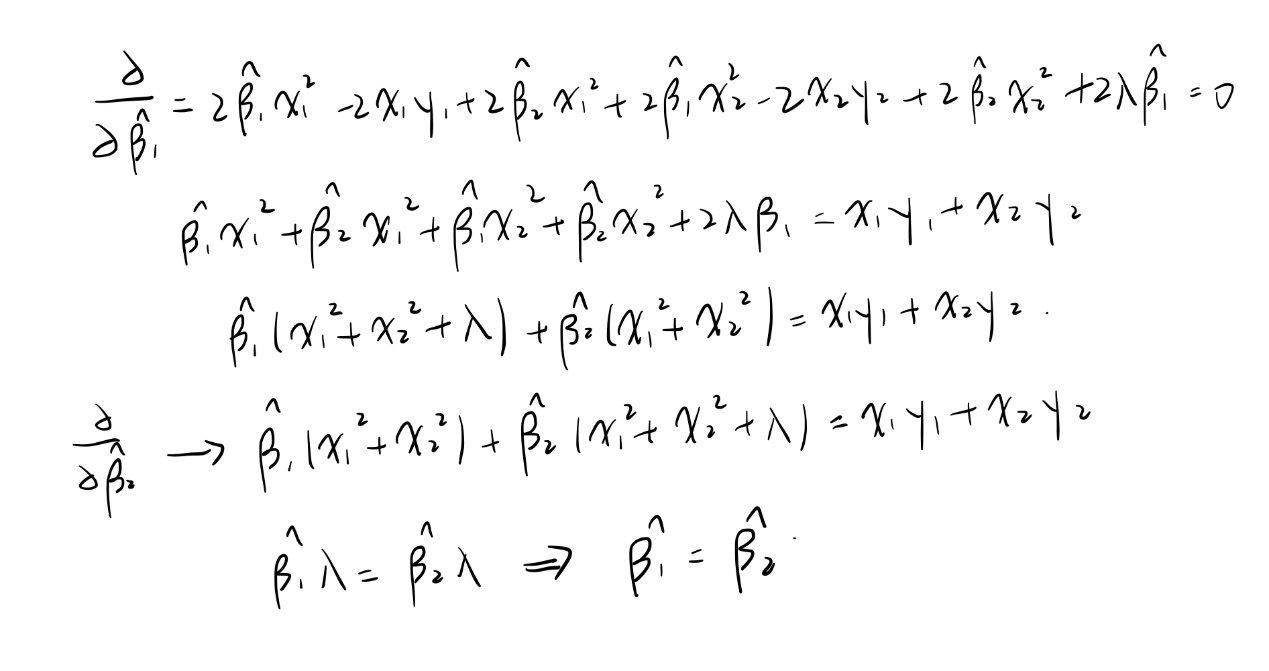 ∂/∂β̂₁ = 2β̂₁x₁² - 2x₁y₁ + 2β̂₂x₁² + 2β̂₁x₂² - 2x₂y₂ + 2β̂₂x₂² + 2λβ̂₁ = 0
β̂₁x₁² + β̂₂x₁² + β̂₁x₂² + β̂₂x₂² + 2λβ₁ = x₁y₁ + x₂y₂
β̂₁(x₁² + x₂² + λ) + β̂₂(x₁² + x₂²) = x₁y₁ + x₂y₂.
∂/∂β̂₂ → β̂₁(x₁² + x₂²) + β̂₂(x₁² + x₂² + λ) = x₁y₁ + x₂y₂
β̂₁λ = β̂₂λ ⇒ β̂₁ = β̂₂.